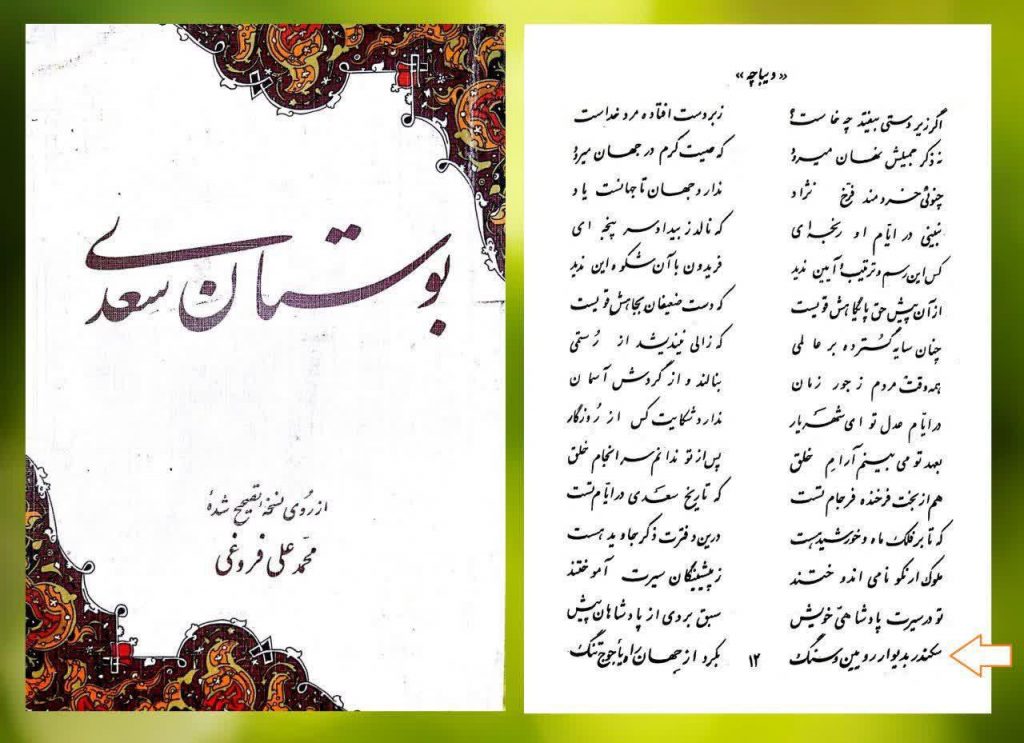 بوستان سعدی
از روی نسخه تصحیح شدهٔ
محمد علی فروغی
« دیباچه »
اگر زیر دستی بیفتد چه خاست؟ زبردست افتاده مرد خداست
نه ذکر جمیلش نهان میرود که صیت کرم در جهان میرود
چنوئی خردمند فرخ نژاد ندارد جهان تا جهانست یاد
نبینی در ایّام او رنجه‌ای که نالد ز بیداد سر پنجه‌ای
کس این رسم و ترتیب و آیین ندید فریدون با آن شکوه این ندید
از آن پیش حق پایگاهش قویست که دست ضعیفان بجاهش قویست
چنان سایه گسترده بر عالمی که زالی نیندیشد از رُستمی
همه وقت مردم ز جور زمان بنالند و از گردش آسمان
در ایّام عدل تو ای شهریار ندارد شکایت کس از رُوزگار
بعهد تو می بینم آرام خلق پس از تو ندانم سرانجام خلق
هم از بخت فرخنده فرجام تست که تاریخ سعدی در ایّام تست
که تا بر فلک ماه و خورشید هست درین دفترت ذکر جاوید هست
ملوک ار نکو نامی اندوختند ز پیشینگان سیرت آموختند
تو در سیرت پادشاهیّ خویش سبق بردی از پادشاهان پیش
سکندر بدیوار رویین و سنگ بکرد از جهان راه یأجوج تنگ
۱۲